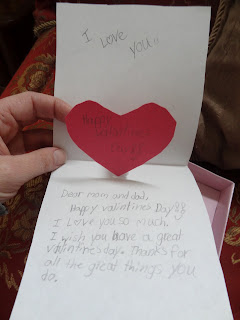 I love you!!
Happy
Valintines
Day!
Dear mom and dad,
Happy valintines Day!!
I Love you so much.
I wish you have a great
valintines day. Thanks for
all the great things you
do.